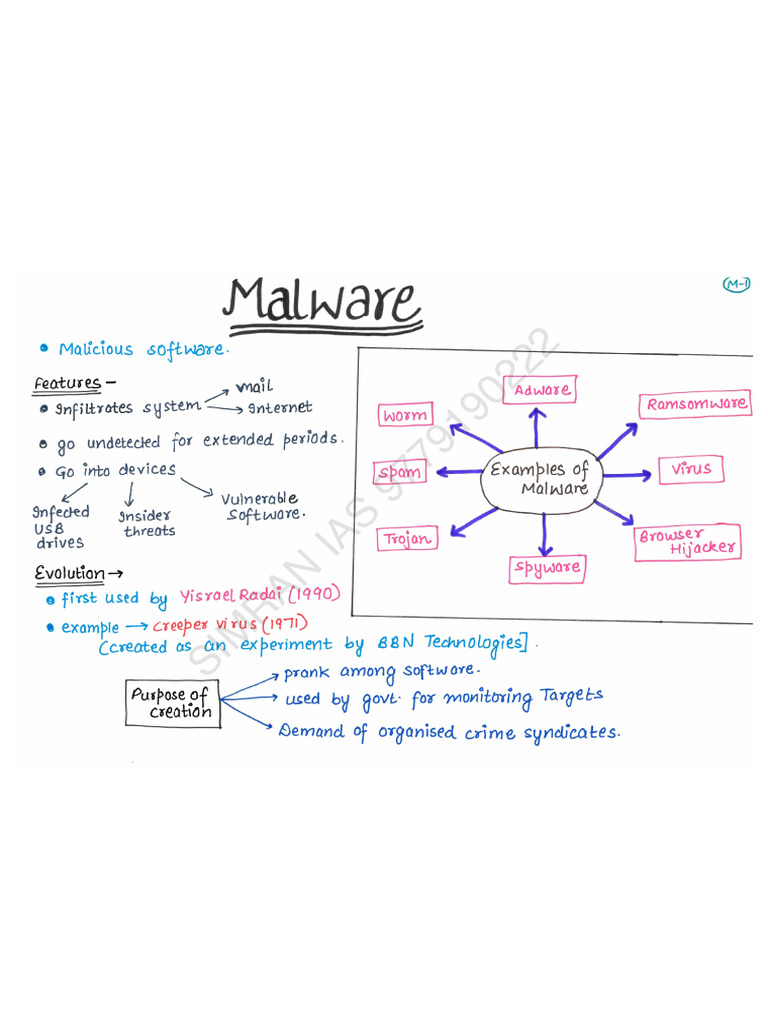 Malware
M-1
• Malicious software.
Features -
• Infiltrates system → mail
→ Internet
• go undetected for extended periods.
• Go into devices
Infected USB drives
Insider threats
Vulnerable software.
Evolution →
• first used by Yisrael Radai (1990)
• example → creeper virus (1971)
(created as an experiment by BBN Technologies].
Purpose of creation
→ prank among software.
→ used by govt. for monitoring Targets
→ Demand of organised crime syndicates.
Examples of Malware
Adware
Ramsomware
Worm
Spam
Virus
Trojan
Spyware
Browser Hijacker
SIMRAN IAS 9779190222